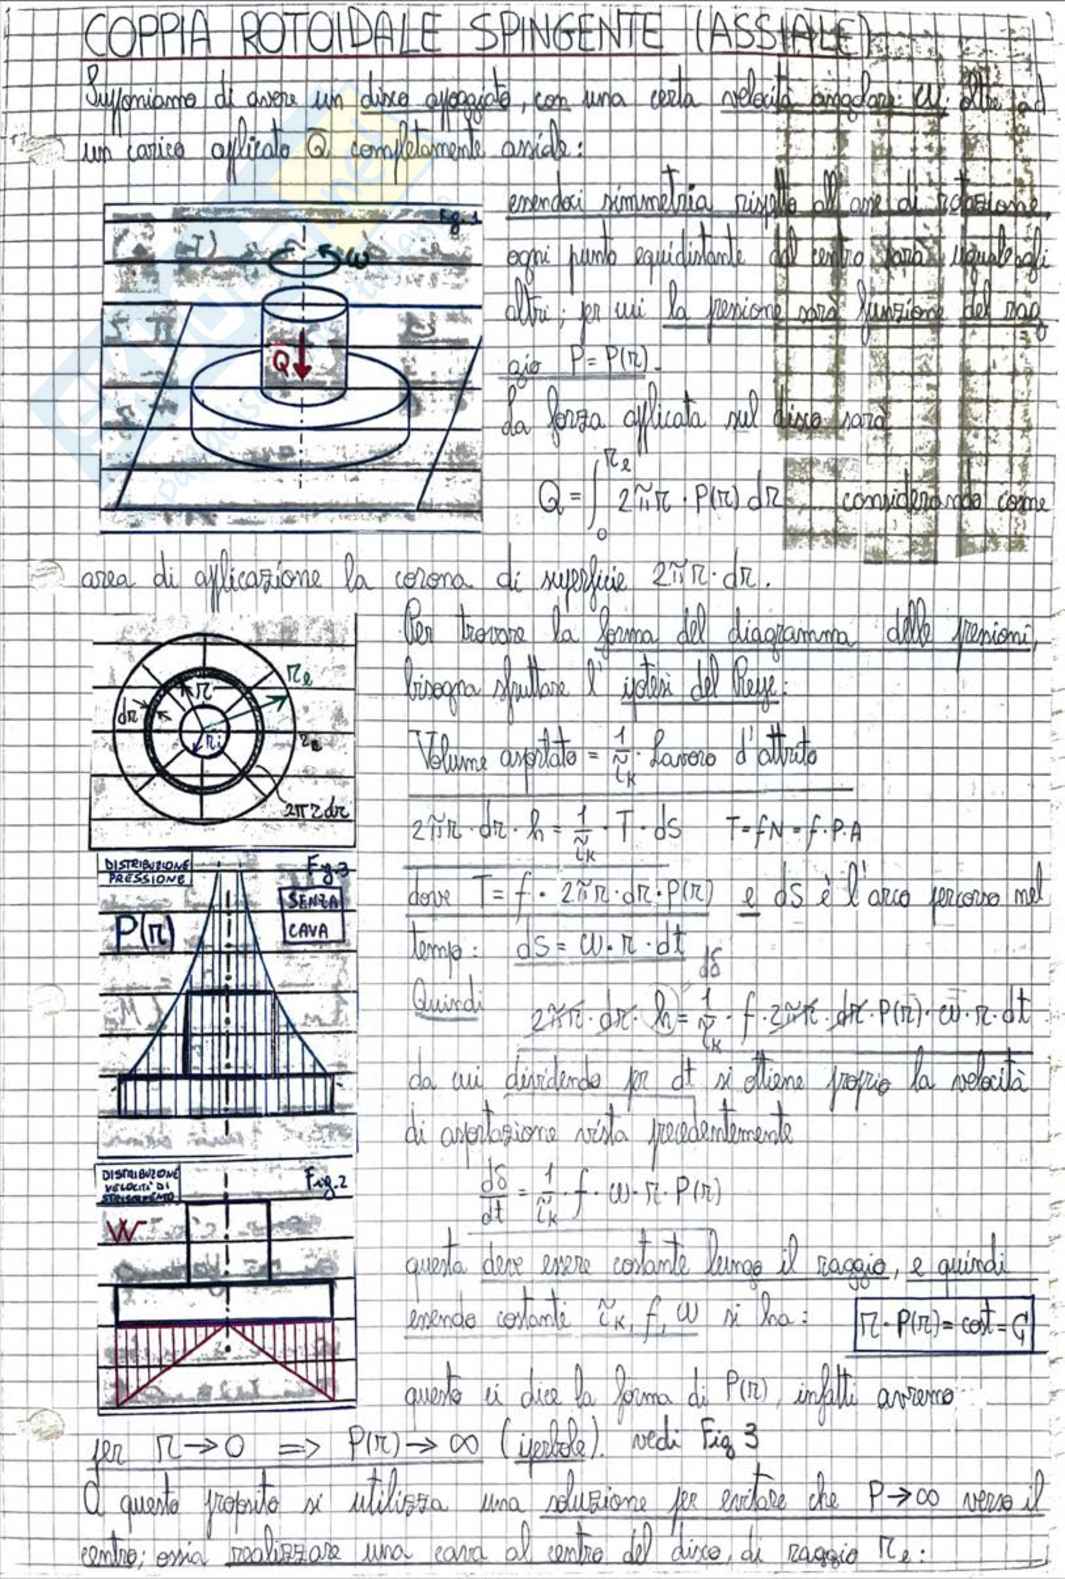 COPPIA ROTOIDALE SPINGENTE (ASSIALE)
Supponiamo di avere un disco appoggiato, con una certa velocità angolare ω, oltre ad
un carico applicato Q completamente assiale:
essendoci simmetria rispetto all'asse di rotazione,
ogni punto equidistante dal centro sarà uguale agli
altri; per cui la pressione sarà funzione del rag
gio P = P(r).
La forza applicata sul disco sarà
Q = ∫₀^{r_e} 2πr · P(r) dr considerando come
area di applicazione la corona di superficie 2πr·dr.
Fig. 1
ω
Q
Per trovare la forma del diagramma delle pressioni,
bisogna sfruttare l'ipotesi del Reye:
Volume asportato = 1/τ̃_K · Lavoro d'attrito
2πr · dr · h = 1/τ̃_K · T · ds T = fN = f·P·A
dove T = f · 2πr · dr · P(r) e ds è l'arco percorso nel
tempo: ds = ω · r · dt
dδ
Quindi 2πr · dr · h = 1/τ̃_K · f · 2πr · dr · P(r) · ω · r · dt
da cui dividendo per dt si ottiene proprio la velocità
di asportazione vista precedentemente
dδ/dt = 1/τ̃_K · f · ω · r · P(r)
questa deve essere costante lungo il raggio, e quindi
essendo costante τ̃_K, f, ω si ha: r · P(r) = cost = C
questo ci dice la forma di P(r), infatti avremo
r_e
r
dr
r_i
2πrdr
DISTRIBUZIONE
PRESSIONE
Fig.3
SENZA
CAVA
P(r)
DISTRIBUZIONE
VELOCITÀ DI
STRISCIAMENTO
Fig.2
W
per r → 0 ⇒ P(r) → ∞ (iperbole). vedi Fig 3
A questo proposito si utilizza una soluzione per evitare che P → ∞ verso il
centro; ossia realizzare una cava al centro del disco, di raggio r_e: